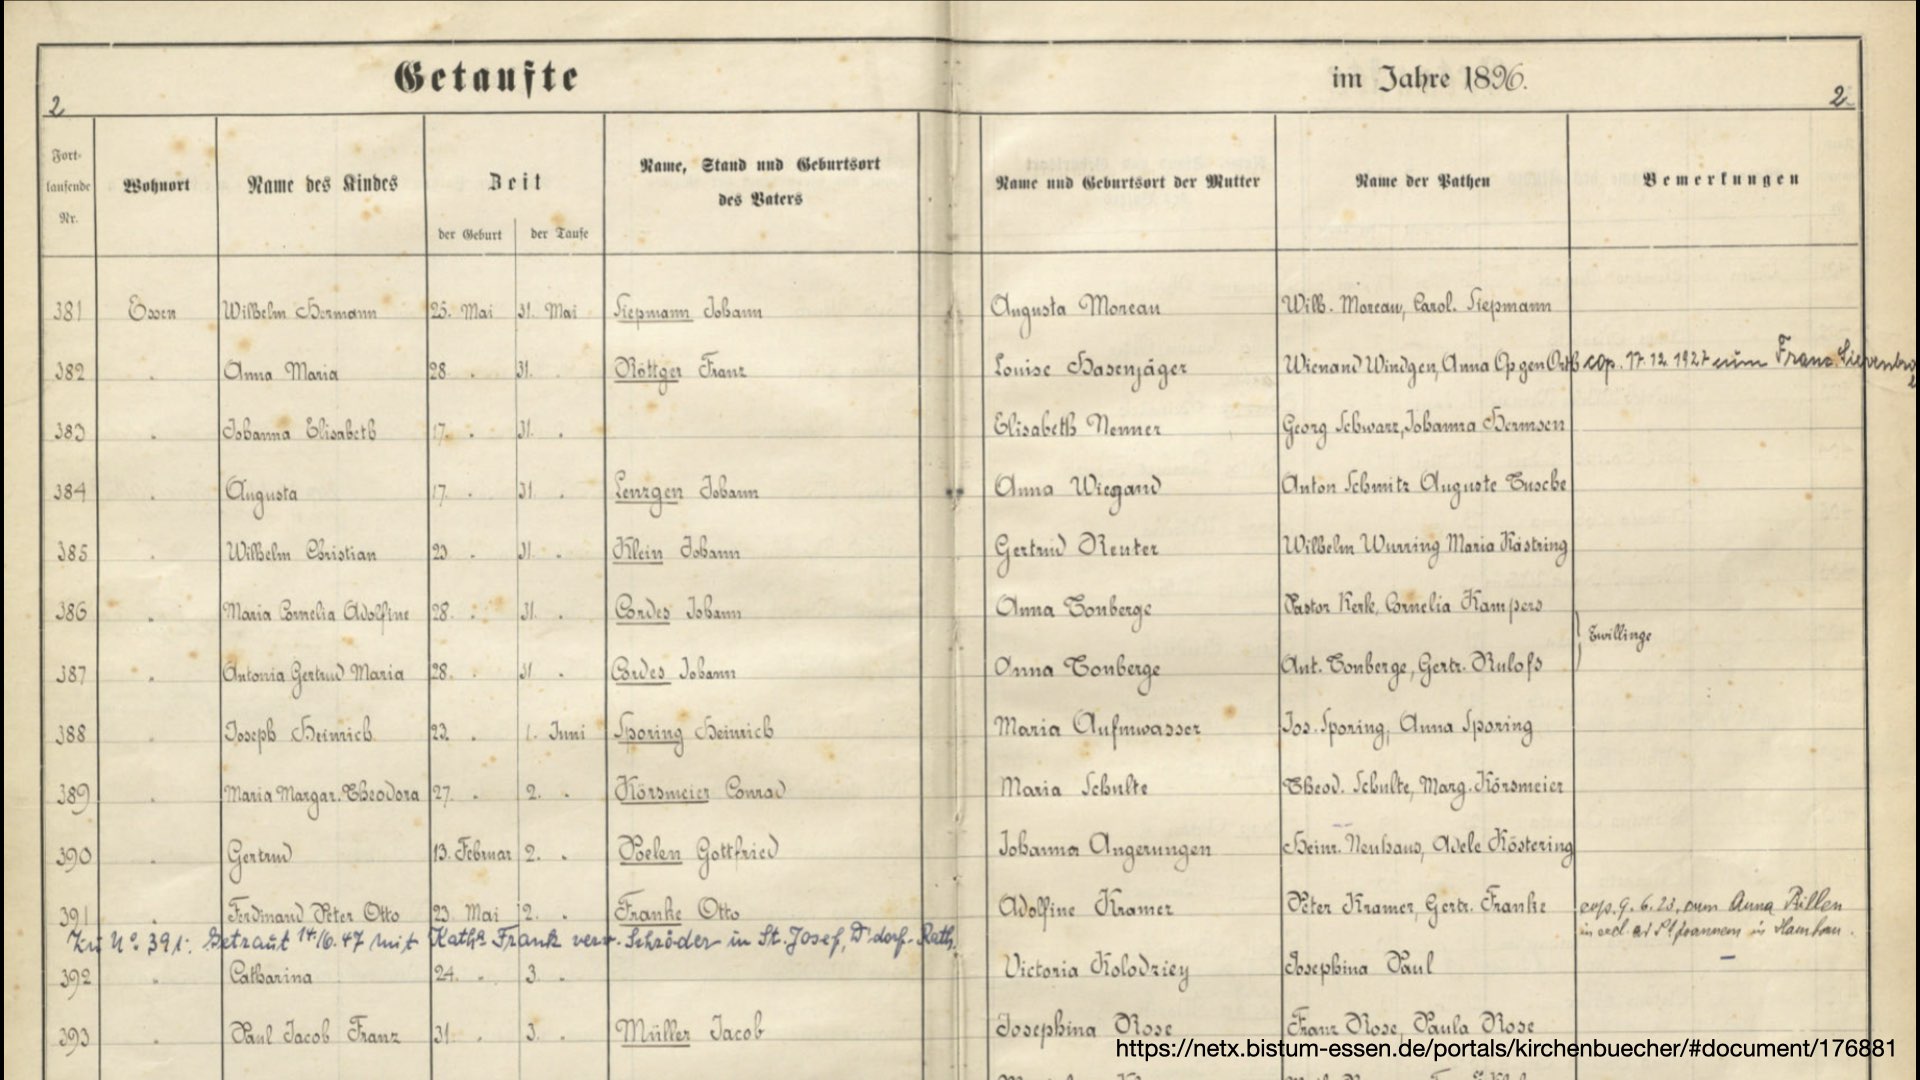 Getaufte im Jahre 1896.
2 2
Fort-
laufende
Nr.
Wohnort
Name des Kindes
Zeit
der Geburt
der Taufe
Name, Stand und Geburtsort
des Vaters
Name und Geburtsort der Mutter
Name der Pathen
Bemerkungen
381 Essen Wilhelm Hermann 25. Mai 31. Mai Siepmann Johann Augusta Moreau Wilh. Moreau, Carol. Siepmann
382 " Anna Maria 28 " 31. Röttger Franz Louise Hasenjäger Wienand Windgen, Anna Op gen Orth cop. 17.12.1927 cum Franc.
383 " Johanna Elisabeth 17. " 31. " Elisabeth Nenner Georg Schwarz, Johanna Hermsen
384 " Augusta 17. " 31 " Lenzgen Johann Anna Wiegand Anton Schmitz Auguste Tusche
385 " Wilhelm Christian 23 " 31. " Klein Johann Gertrud Reuter Wilhelm Wurring Maria Kästring
386 " Maria Cornelia Adolfine 28. " 31. " Cordes Johann Anna Tonberge Pastor Kerk, Cornelia Kampers
Zwillinge
387 " Antonia Gertrud Maria 28. " 31 " Cordes Johann Anna Tonberge Ant. Tonberge, Gertr. Rulofs
388 " Joseph Heinrich 23. " 1. Juni Sporing Heinrich Maria Aufmwasser Jos. Sporing, Anna Sporing
389 " Maria Margar. Theodora 27. " 2. " Körsmeier Conrad Maria Schulte Theod. Schulte, Marg. Körsmeier
390 " Gertrud 13. Februar 2. " Poelen Gottfried Johanna Angerungen Heinr. Neuhaus, Adele Köstering
391 " Ferdinand Peter Otto 23 Mai 2. " Franke Otto Adolfine Kramer Peter Kramer, Gertr. Franke cop. 9.6.23. cum Anna Billen
in eccl. ad St Joannem in Hamborn.
Zu No. 391: Getraut 14/6.47 mit Katha Frank verw. Schröder in St. Josef, D'dorf-Rath.
392 " Catharina 24. " 3. " Victoria Kolodziey Josephina Paul
393 " Paul Jacob Franz 31. " 3. " Müller Jacob Josephina Rose Franz Rose, Paula Rose
https://netx.bistum-essen.de/portals/kirchenbuecher/#document/176881